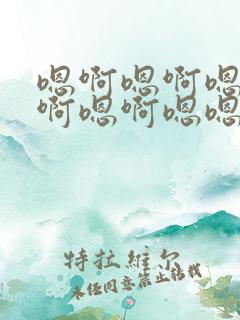 嗯啊嗯啊嗯
啊嗯啊嗯嗯
特拉維尔
未任同意禁止转载